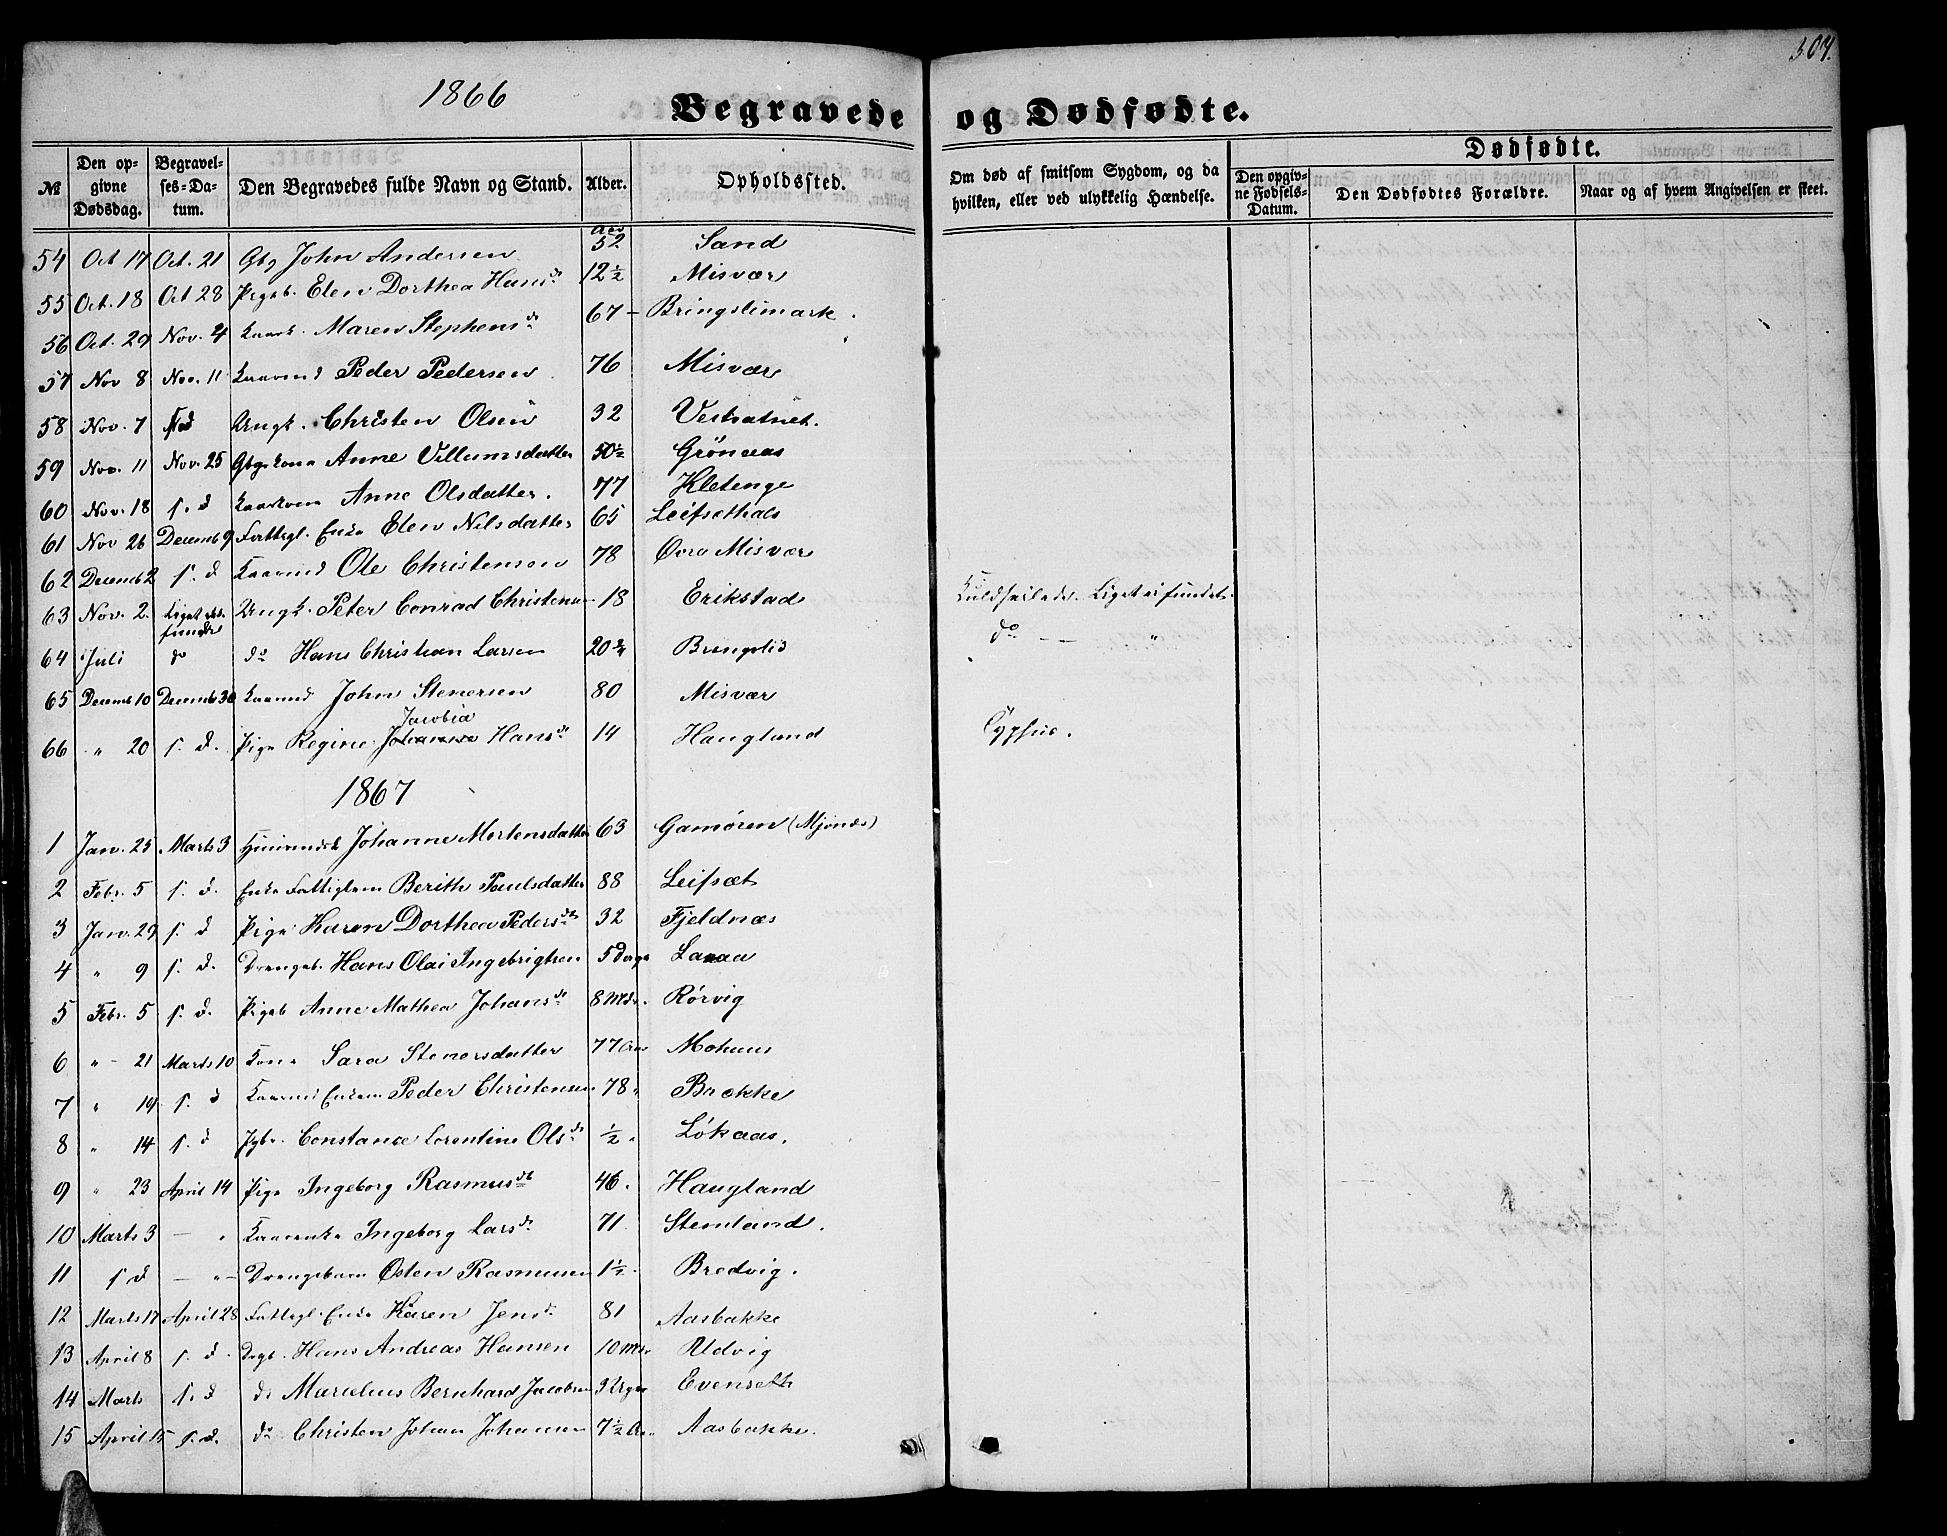 1866
Begravede og Dødfødte.
304.
№
Den opgivne Dødsdag.
Begravelses-Datum.
Den Begravedes fulde Navn og Stand.
Alder.
Opholdssted.
Om død af smitsom Sygdom, og da hvilken, eller ved ulykkelig Hændelse.
Dødfødte.
Den opgivne Fødsels-Datum.
Den Dødfødtes Forældre.
Naar og af hvem Angivelsen er skeet.
54 Oct 17 Oct. 21 Gbr John Andersen Aar 52 Sand
55 Oct. 18 Oct 28 Pigeb. Elen Dorthea Hansdr 12½ Misvær
56 Oct. 29 Nov. 4 Maren Stephensdr 67 - Bringslimark
57 Nov 8 Nov. 11 Kaarmd Peder Pedersen 76 Misvær
58 Nov. 7 s d Ungk. Christen Olsen 32 Vestvatnet.
59 Nov. 11 Nov. 25 Gbrskone Anne Villumsdatter 50½ Grönaas
60 Nov. 18 s. d Kaarkone Anne Olsdatter. 77 Kletenge
61 Nov 26 Decemb 9 Fattigl. Enke Elen Nilsdatter 65 Leifsethals
62 Decemb 2 s. d Kaarmd Ole Christensen 78 Övre Misvær
63 Nov. 2. Liget ei fundet Ungk. Peter Conrad Christensen 18 Erikstad Kuldseilede. Liget ei fundet.
64 Juli do do Hans Christian Larsen 20¾ Bringslid do - - "
65 Decemb 10 Decemb 30 Kaarmd John Stenersen 80 Misvær
66 " 20 s. d. Pige Regine Jacobia Hansdr 14 Haugland Typhus.
1867
1 Jan. 25 Marts 3 Johanne Mortensdatter 63 Gamøren (Mjönæs)
2 Febr. 5 s. d. Enke Fattiglem Berith Paulsdatter 88 Leifsæt
3 Jan. 29 s. d Pige Karen Dorthea Pedersdr 32 Fjeldnæs
4 " 9 s. d. Drengeb. Hans Olai Ingebrigtsen 5 Dage Laaa
5 Febr. 5 s. d. Pigeb Anne Mathea Johansdr 8 Mdr. Rörvig
6 " - 21 Marts 10 Kone Sara Stenersdatter 77 Aar Mohuus
7 " 19 s. d Kaarmd Enkem Peder Christensen 78 " Brekke
8 " 14 s. d Pgbr. Constance Lorentine Olsdr ½ " Lökaas.
9 " 23 April 14 Pige Ingeborg Rasmusdr 46. Haugland
10 Marts 3 - " Kaarenke Ingeborg Larsdr 71 Stemland.
11 s d - " - Drengebarn Østen Rasmussen 1½ Bredvig.
12 Marts 17 April 28 Fattigl. Enke Karen Jensdr 81 Aasbakke
13 April 8 s. d. Drgb. Hans Andreas Hansen 10 Mdr Udvig
14 Marts s. d do Marcelius Bernhard Jacobsen 3 Uger Evenseth
15 April 15 s. d. do Christen Johan Johansen 7½ Aar Aasbakke.